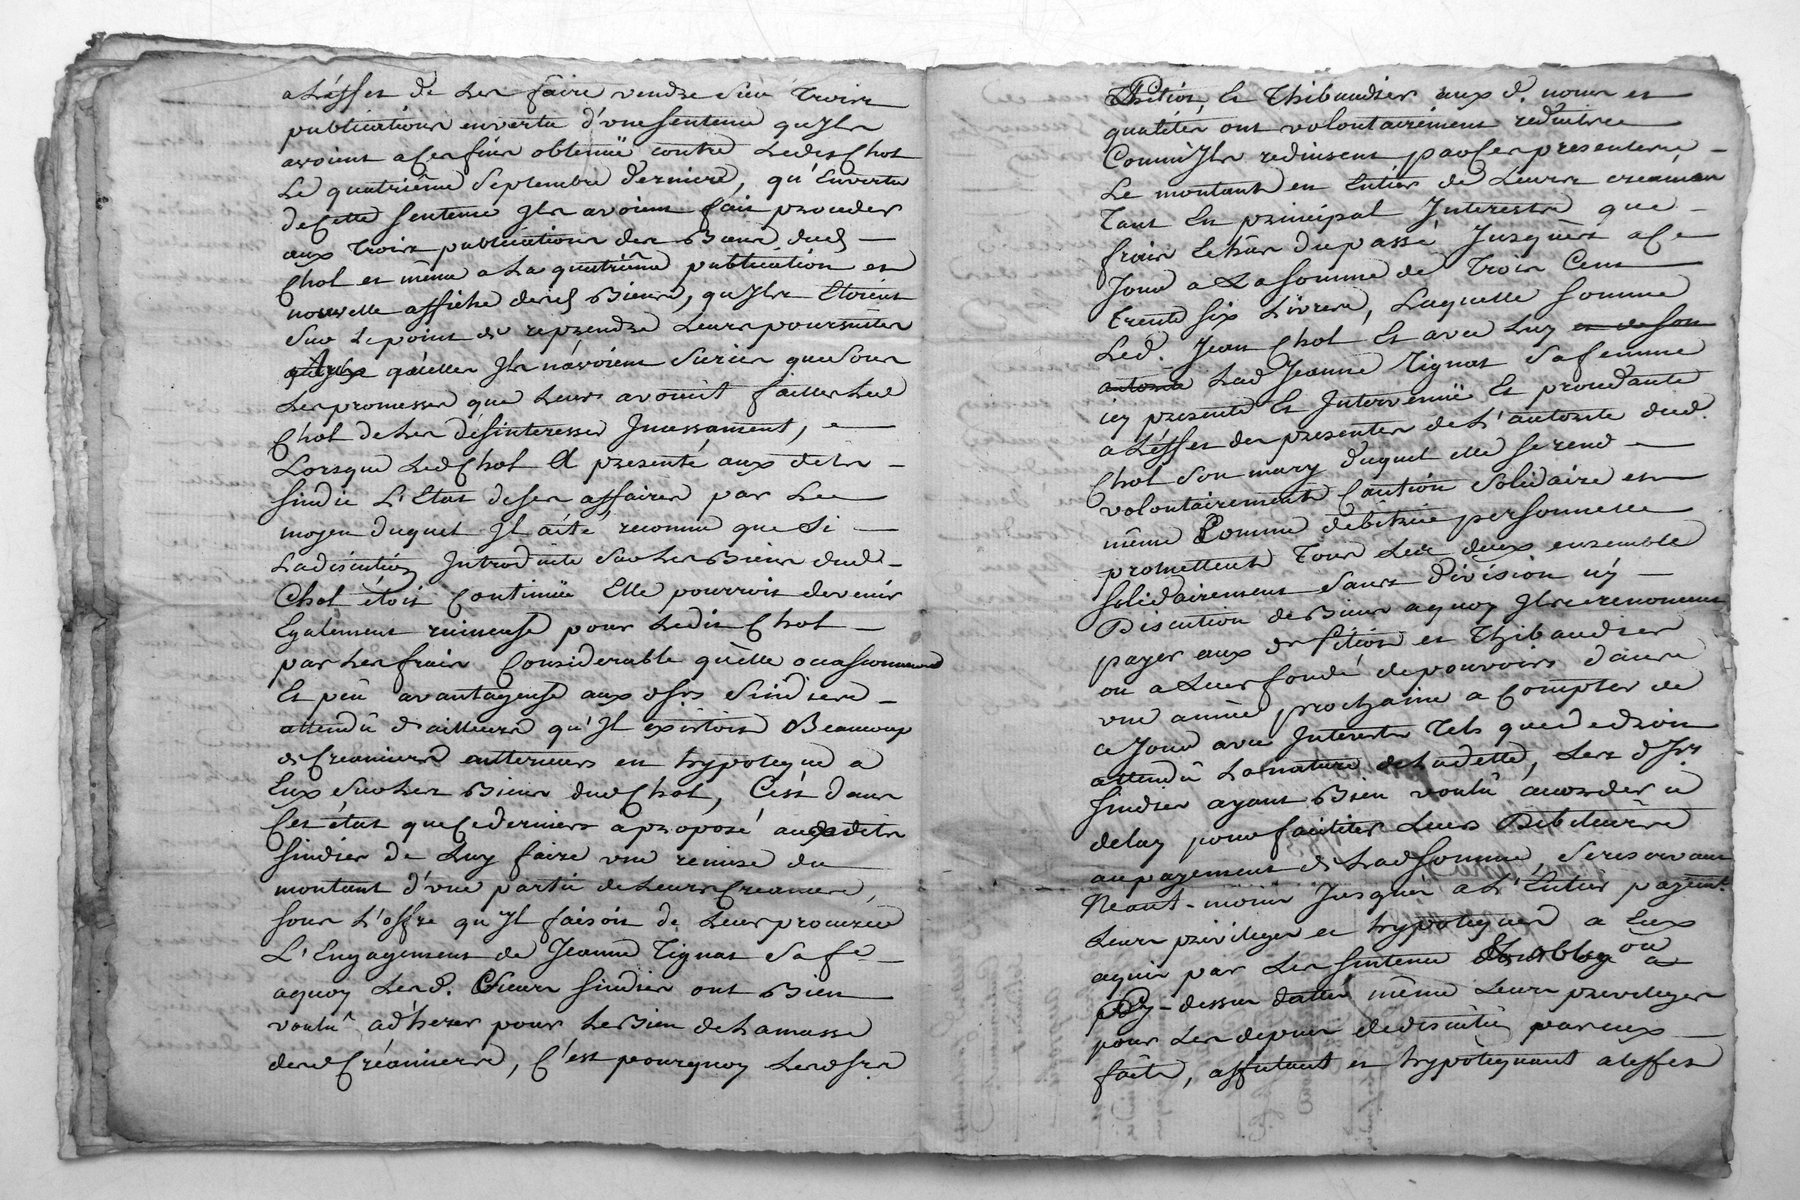 a L'effet de Les faire vendre sur trois
publications envertu d'une sentence qu'Ils
avoient a ces fins obtenüe contre Ledit Chol
Le quatriéme Septembre derniere, qu'Envertu
de Cette sentence Ils avoient fait proceder
aux trois publications des Biens dud
Chol et même a La quatriême publication et
nouvelle affiche desd Biens, qu'Ils Etoient
Sur Le point de reprendre Leurs poursuittes
qu'elles Ils n'avoient que Sous
Les promesses que Leurs avoüit faittes Led
Chol de Les désinteresser Incessament,
Lorsque Led Chol A presenté aux dits
sindic L'Etat deses affaires par Le
moyen duquel Il a été reconnu que Si
La discution Introduite Sur Les Biens dud
Chol étoit Continüée Elle pourroit devenir
Egalement ruineuse pour Ledit Chol
par Les frais Considerable qu'elle occasionneroit
Et peu avantageuse aux dsrs Sindics
attendû d'ailleurs qu'Il existoit Beaucoup
de Creanciers antterieurs en hypoteque a
Eux Sur Les Biens dud Chol, C'est dans
Cet état que Ce derniers a proposé auxdits
sindics de Luy faire une remise du
montant d'une partie de Leurs Creances,
sous L'offre qu'Il faisoit de Leur procurer
L'Engagement de Jeanne Tignat Safe
aquoy Lesd. Sieurs sindics ont Bien
voulû adherer pour Le Bien de La masse
desd Créanciers, C'est pourquoy Lesd srs
Petiot, Et Thibaudier aux d. noms et
qualités ont volontairement reduitte
Comm'Ils redüisent par Ces presentes
Le montant en Entier de Leurs creances
Tant En principal Interests que
frais Echûs du passé Jusques a Ce
Jour a La somme de Trois Cent
trente six Livres, Laquelle somme
Led. Jean Chol Et avec Luy et de son
autorité Lad Jeanne Tignat Sa femme
icy presente Et Intervenüe Et procedante
a L'effet des presentes de L'autorité dud.
Chol Son mary duquel elle se rend
volontairement Caution Solidaire et
même Comme débitrice personnelle
promettent Tous Les deux ensemble
solidairement sans division ny
Discution de Biens aquoy Ils renoncent
payer aux dsr Petiot et Thibaudier
ou a Leur fondé de pouvoirs dans
une année prochaine a Compter de
ce Jour avec Interests Tels que de droit
attendû La nature de La dette, Les dsrs
sindics ayant Bien voulû accorder ce
delay pour faciliter Leurs Debiteurs
au payement de Lad somme, Se reservant
Neant-moins Jusques a L'Entier payemt.
Leurs privileges et hypoteques a Eux
aquis par Les sentence Et oblig on a
Cy-dessus dattés même Leurs privileges
pour Les depens de discution par eux
faits, affectant et hypotequant a L'effet